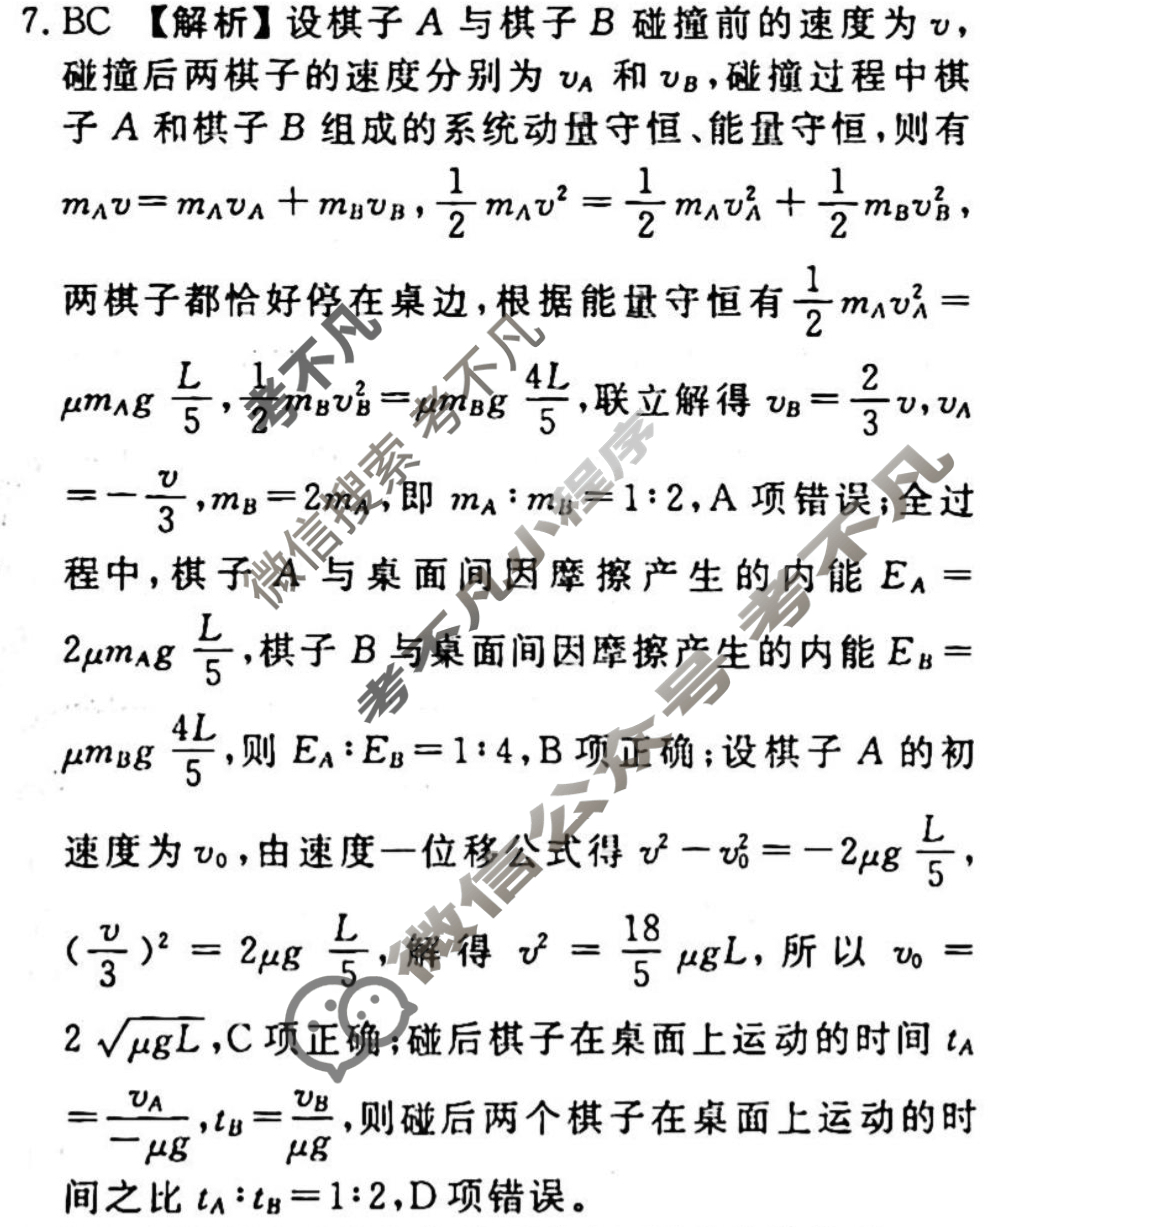 7. BC 【解析】设棋子 A 与棋子 B 碰撞前的速度为 v,
碰撞后两棋子的速度分别为 v_A 和 v_B,碰撞过程中棋
子 A 和棋子 B 组成的系统动量守恒、能量守恒,则有
m_A v=m_A v_A+m_B v_B, 1/2 m_A v²=1/2 m_A v_A²+1/2 m_B v_B²,
两棋子都恰好停在桌边,根据能量守恒有 1/2 m_A v_A²=
μm_A g L/5, 1/2 m_B v_B²=μm_B g 4L/5,联立解得 v_B=2/3 v,v_A
=-v/3,m_B=2m_A,即 m_A:m_B=1:2,A 项错误;全过
程中,棋子 A 与桌面间因摩擦产生的内能 E_A=
2μm_A g L/5,棋子 B 与桌面间因摩擦产生的内能 E_B=
μm_B g 4L/5,则 E_A:E_B=1:4,B 项正确;设棋子 A 的初
速度为 v₀,由速度—位移公式得 v²-v₀²=-2μg L/5,
(v/3)²=2μg L/5,解得 v²=18/5 μgL,所以 v₀=
2√(μgL),C 项正确;碰后棋子在桌面上运动的时间 t_A
=v_A/(-μg),t_B=v_B/(μg),则碰后两个棋子在桌面上运动的时
间之比 t_A:t_B=1:2,D 项错误。
考不凡
微信搜索 考不凡
考不凡小程序
微信公众号 考不凡